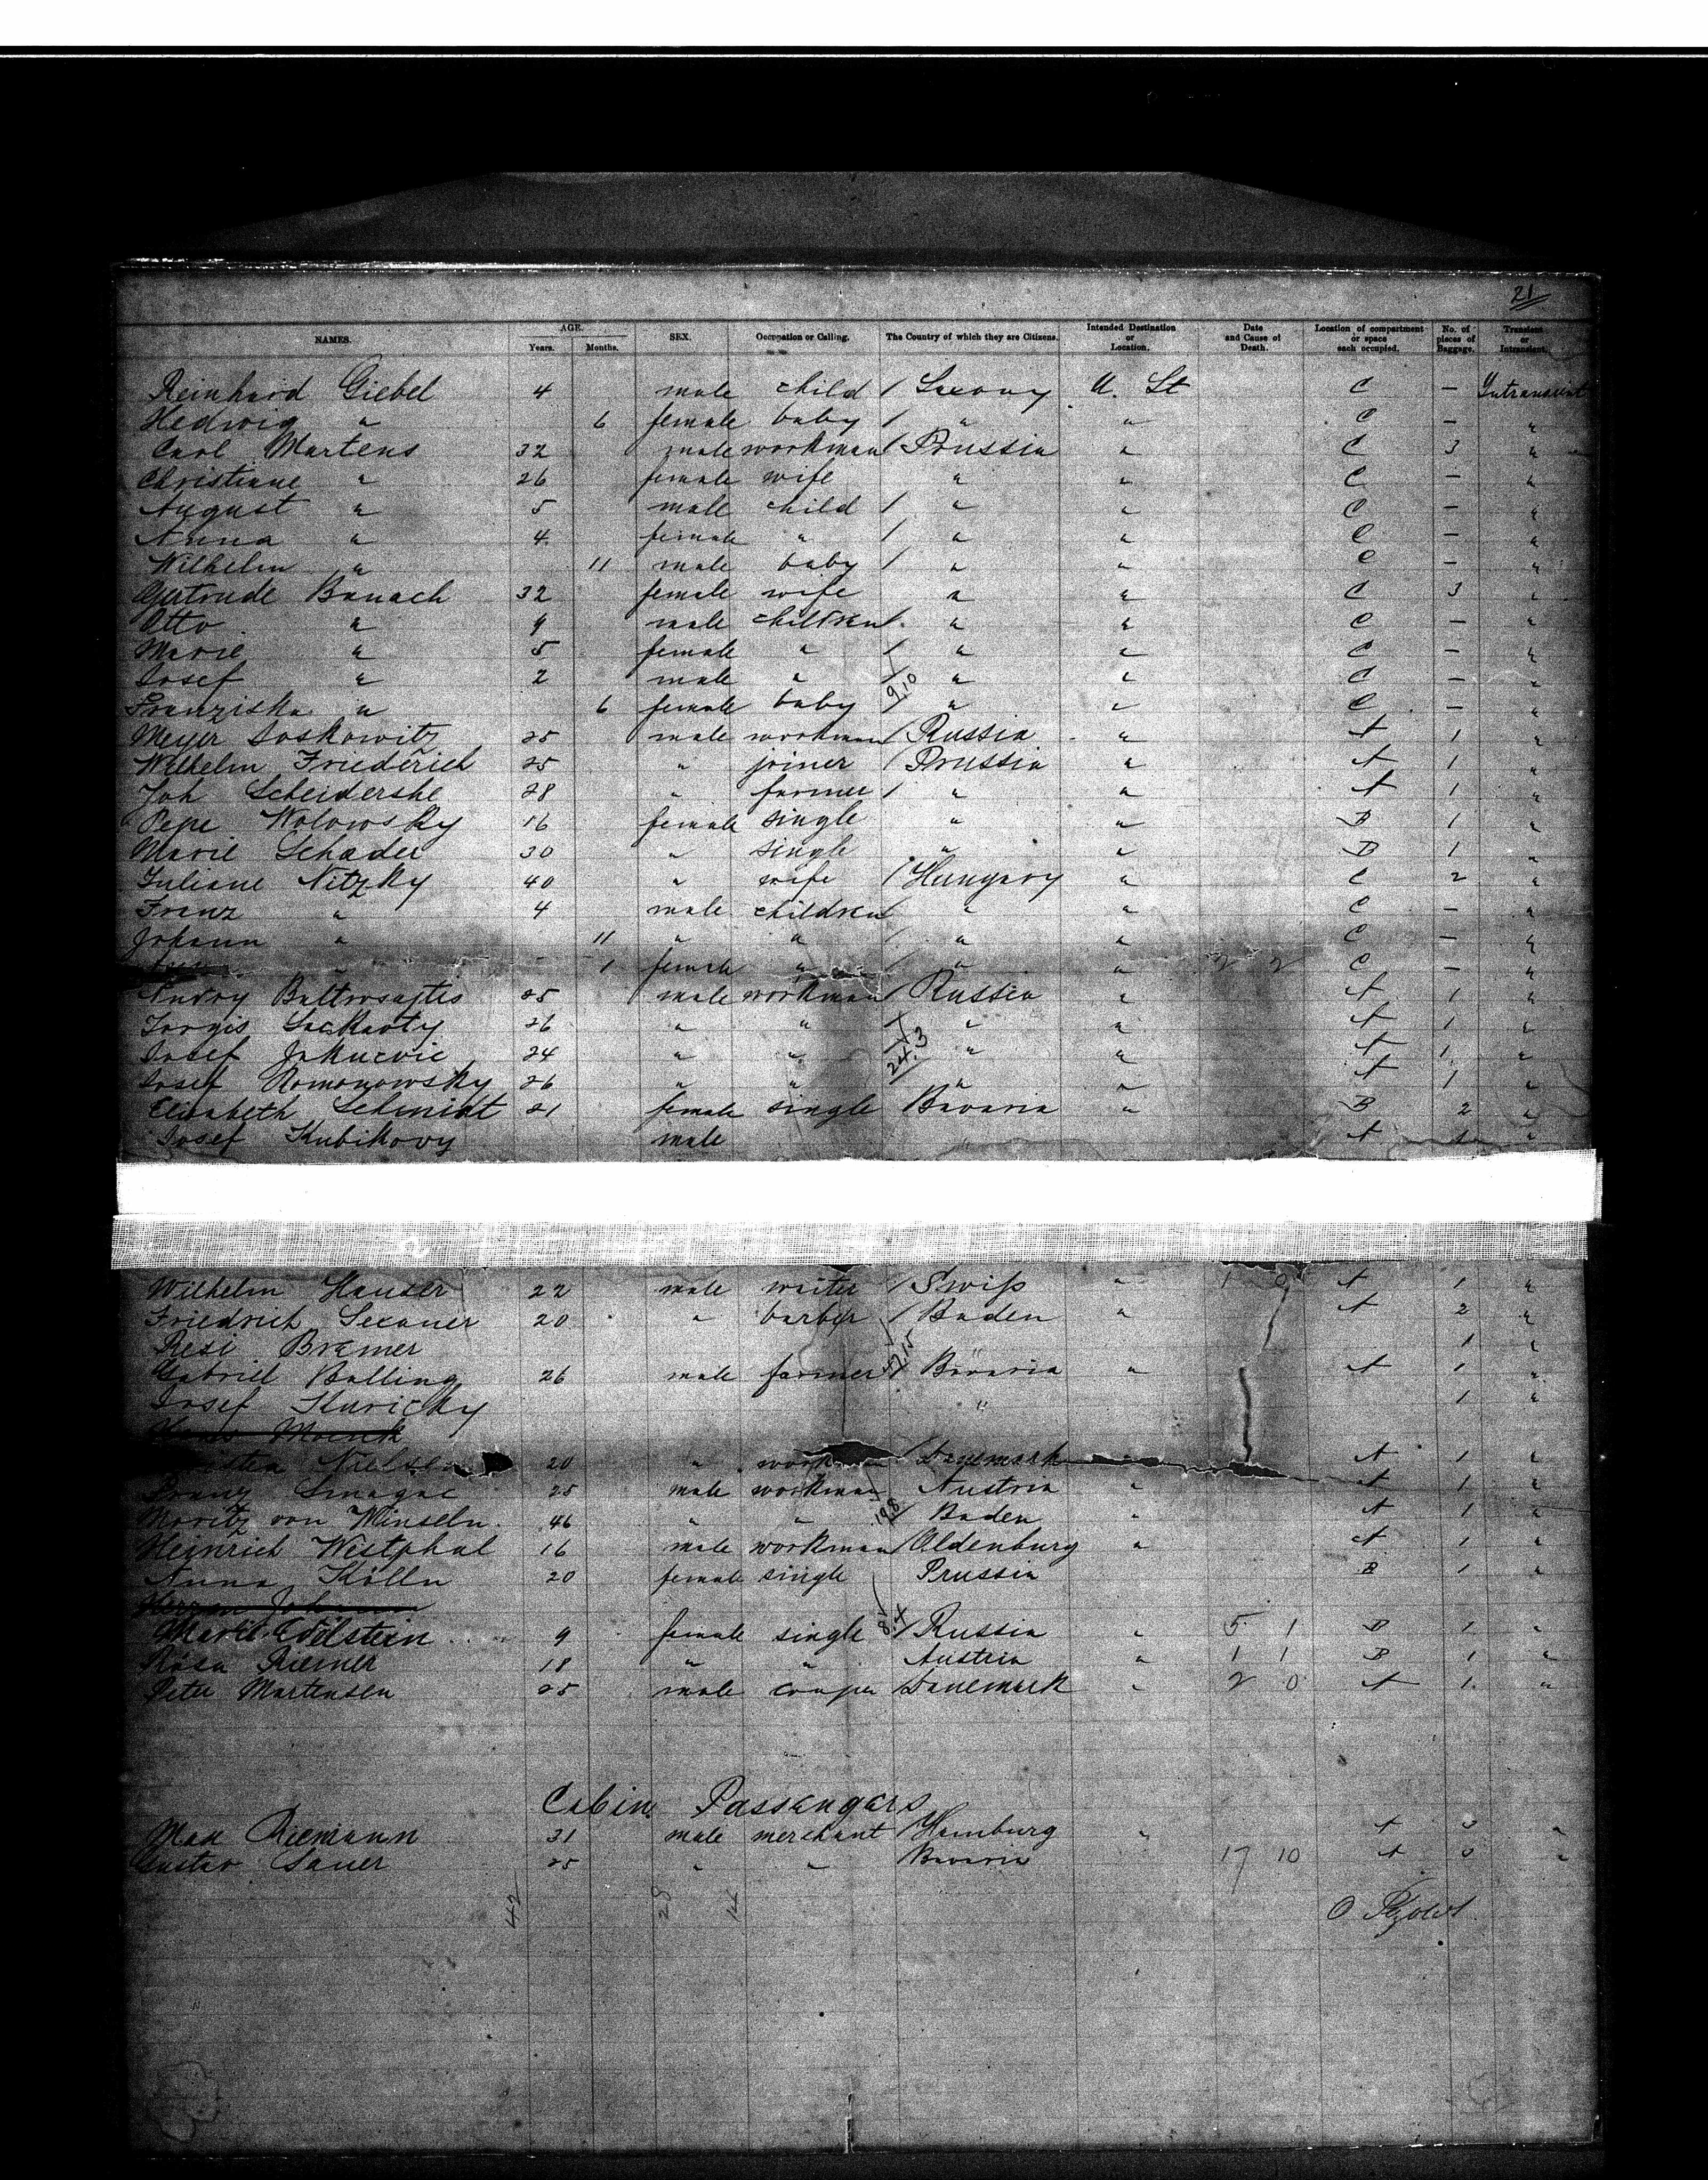 21
NAMES. AGE. Years. Months. SEX. Occupation or Calling. The Country of which they are Citizens. Intended Destination or Location. Date and Cause of Death. Location of compartment or space each occupied. No. of pieces of Baggage. Transient or Intransient.
Reinhard Giebel 4 male child / Saxony U. St C – Intransient
Hedwig " 6 female baby / " " C – "
Carl Martens 32 male workman / Prussia " C 3 "
Christiane " 26 female wife " " C – "
August " 5 male child / " " C – "
Anna " 4 female " / " " C – "
Wilhelm " 11 male baby / " " C – "
Gertrude Banach 32 female wife " " C 3 "
Otto " 9 male children / " " C – "
Marie " 5 female " / " " C – "
Josef " 2 male " / " " C – "
9,10
Franziska " 6 female baby / " " C – "
Meyer Soskowitz 25 male workman / Russia " A 1 "
Wilhelm Friederich 25 " joiner / Prussia " A 1 "
Joh Scheidershe 28 " farmer / " " A 1 "
Pepe Wolowsky 16 female single " " B 1 "
Marie Schader 30 " single " " B 1 "
Juliane Nitzky 40 " wife / Hungary " C 2 "
Franz " 4 male children / " " C – "
Johann " 11 " " / " " C – "
1 female " / " " 2 2 C – "
Baltrusajtes 25 male workman / Russia " A 1 "
26 " " / " A 1 "
Josef Jakucvic 24 " " " " A 1 "
24.3
Josef Romanowsky 26 " " " " A 1 "
Elisabeth Schmidt 21 female single Bavaria " B 2 "
Josef Kubikovy male " A 1 "
Wilhelm Hauser 22 male waiter / Swiss " 1 0 A 1 "
Friedrich Sexauer 20 " barber / Baden " A 2 "
Resi Bramer 1 "
Gabriel Balling 26 male farmer / Bavaria " A 1 "
Josef Kuricky " 1 "
Hans Moenk
Nielsen 20 " workman / Danemark " A 1 "
Franz Smagac 25 male workman Austria " A 1 "
19.8
Moritz von Winseln 46 " " / Baden " A 1 "
Heinrich Westphal 16 male workman / Oldenburg " A 1 "
Anna Kölln 20 female single Prussia B 1 "
Marie Edelstein 9 female single / Russia " 5 1 B 1 "
Rosa Riemer 18 " " Austria " 1 1 B 1 "
Peter Martensen 25 male couper Danemark " 2 0 A 1 "
Cabin Passengers
Max Riemann 31 male merchant / Hamburg " A 3 "
Gustav Sauer 25 " " Bavaria 17 10 A 3 "
42 28 14